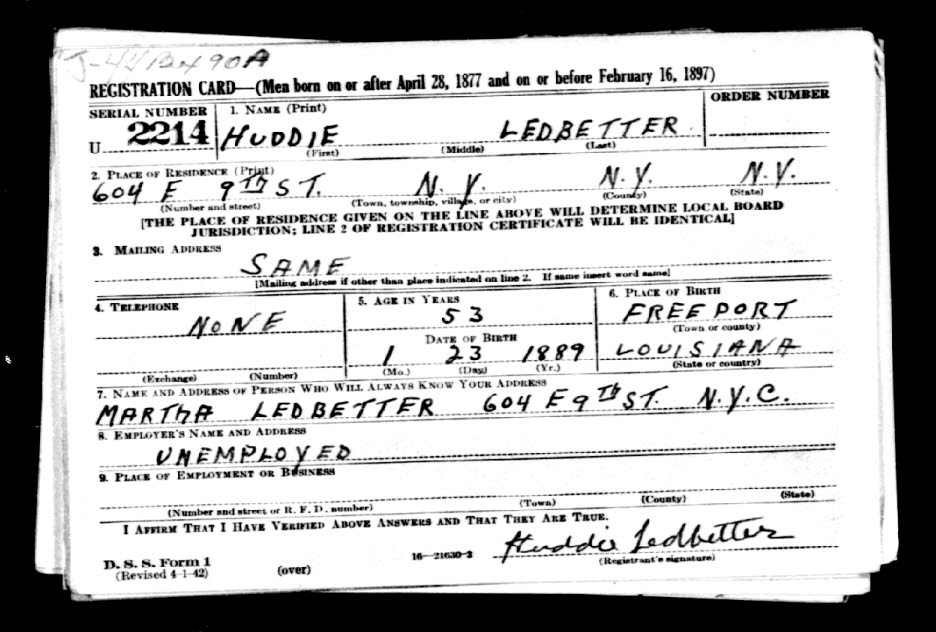 J-44 Box 90A
REGISTRATION CARD—(Men born on or after April 28, 1877 and on or before February 16, 1897)
SERIAL NUMBER 1. NAME (Print) ORDER NUMBER
U 2214 HUDDIE LEDBETTER
(First) (Middle) (Last)
2. PLACE OF RESIDENCE (Print)
604 E 9TH ST. N.Y. N.Y. N.Y.
(Number and street) (Town, township, village, or city) (County) (State)
[THE PLACE OF RESIDENCE GIVEN ON THE LINE ABOVE WILL DETERMINE LOCAL BOARD
JURISDICTION; LINE 2 OF REGISTRATION CERTIFICATE WILL BE IDENTICAL]
3. MAILING ADDRESS
SAME
[Mailing address if other than place indicated on line 2. If same insert word same]
4. TELEPHONE 5. AGE IN YEARS 6. PLACE OF BIRTH
NONE 53 FREEPORT
(Town or county)
DATE OF BIRTH
1 23 1889 LOUISIANA
(Exchange) (Number) (Mo.) (Day) (Yr.) (State or country)
7. NAME AND ADDRESS OF PERSON WHO WILL ALWAYS KNOW YOUR ADDRESS
MARTHA LEDBETTER 604 E 9TH ST. N.Y.C.
8. EMPLOYER'S NAME AND ADDRESS
UNEMPLOYED
9. PLACE OF EMPLOYMENT OR BUSINESS
(Number and street or R. F. D. number) (Town) (County) (State)
I AFFIRM THAT I HAVE VERIFIED ABOVE ANSWERS AND THAT THEY ARE TRUE.
Huddie Ledbetter
D. S. S. Form 1 16—21630-2 (Registrant's signature)
(Revised 4-1-42) (over)